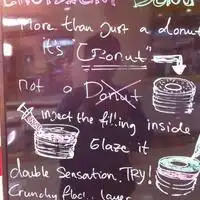 More than just a donut
it's "Cronut"
not a Donut
inject the filling inside
Glaze it
double Sensation. TRY!
Crunchy flaky layer